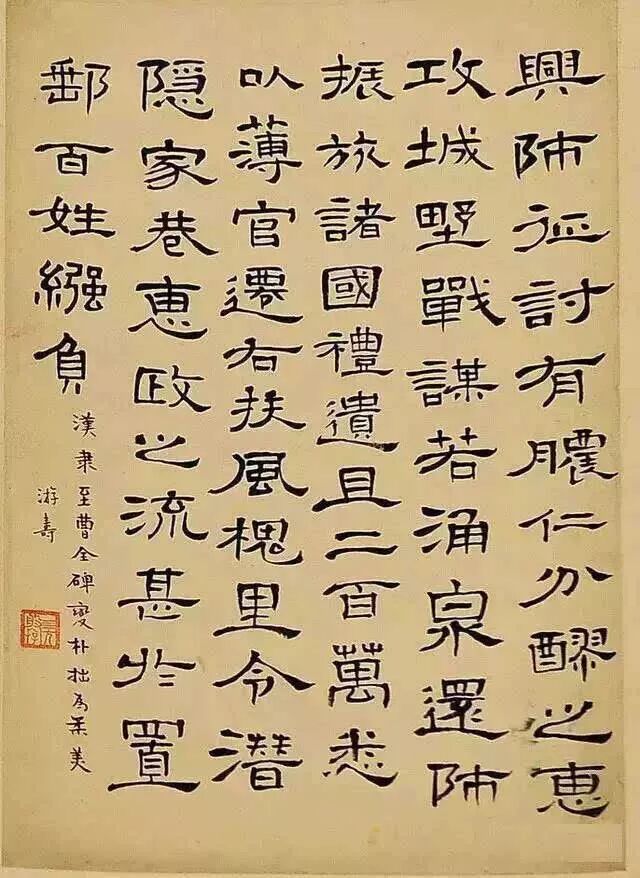 興師征討有膿仁分醪之惠
攻城墅戰謀若涌泉還師
振旅諸國禮遺且二百萬悉
以薄官遷右扶風槐里令潜
隐家巷惠政之流甚於置
郵百姓繦負
漢隶至曹全碑變朴拙為柔美
游壽